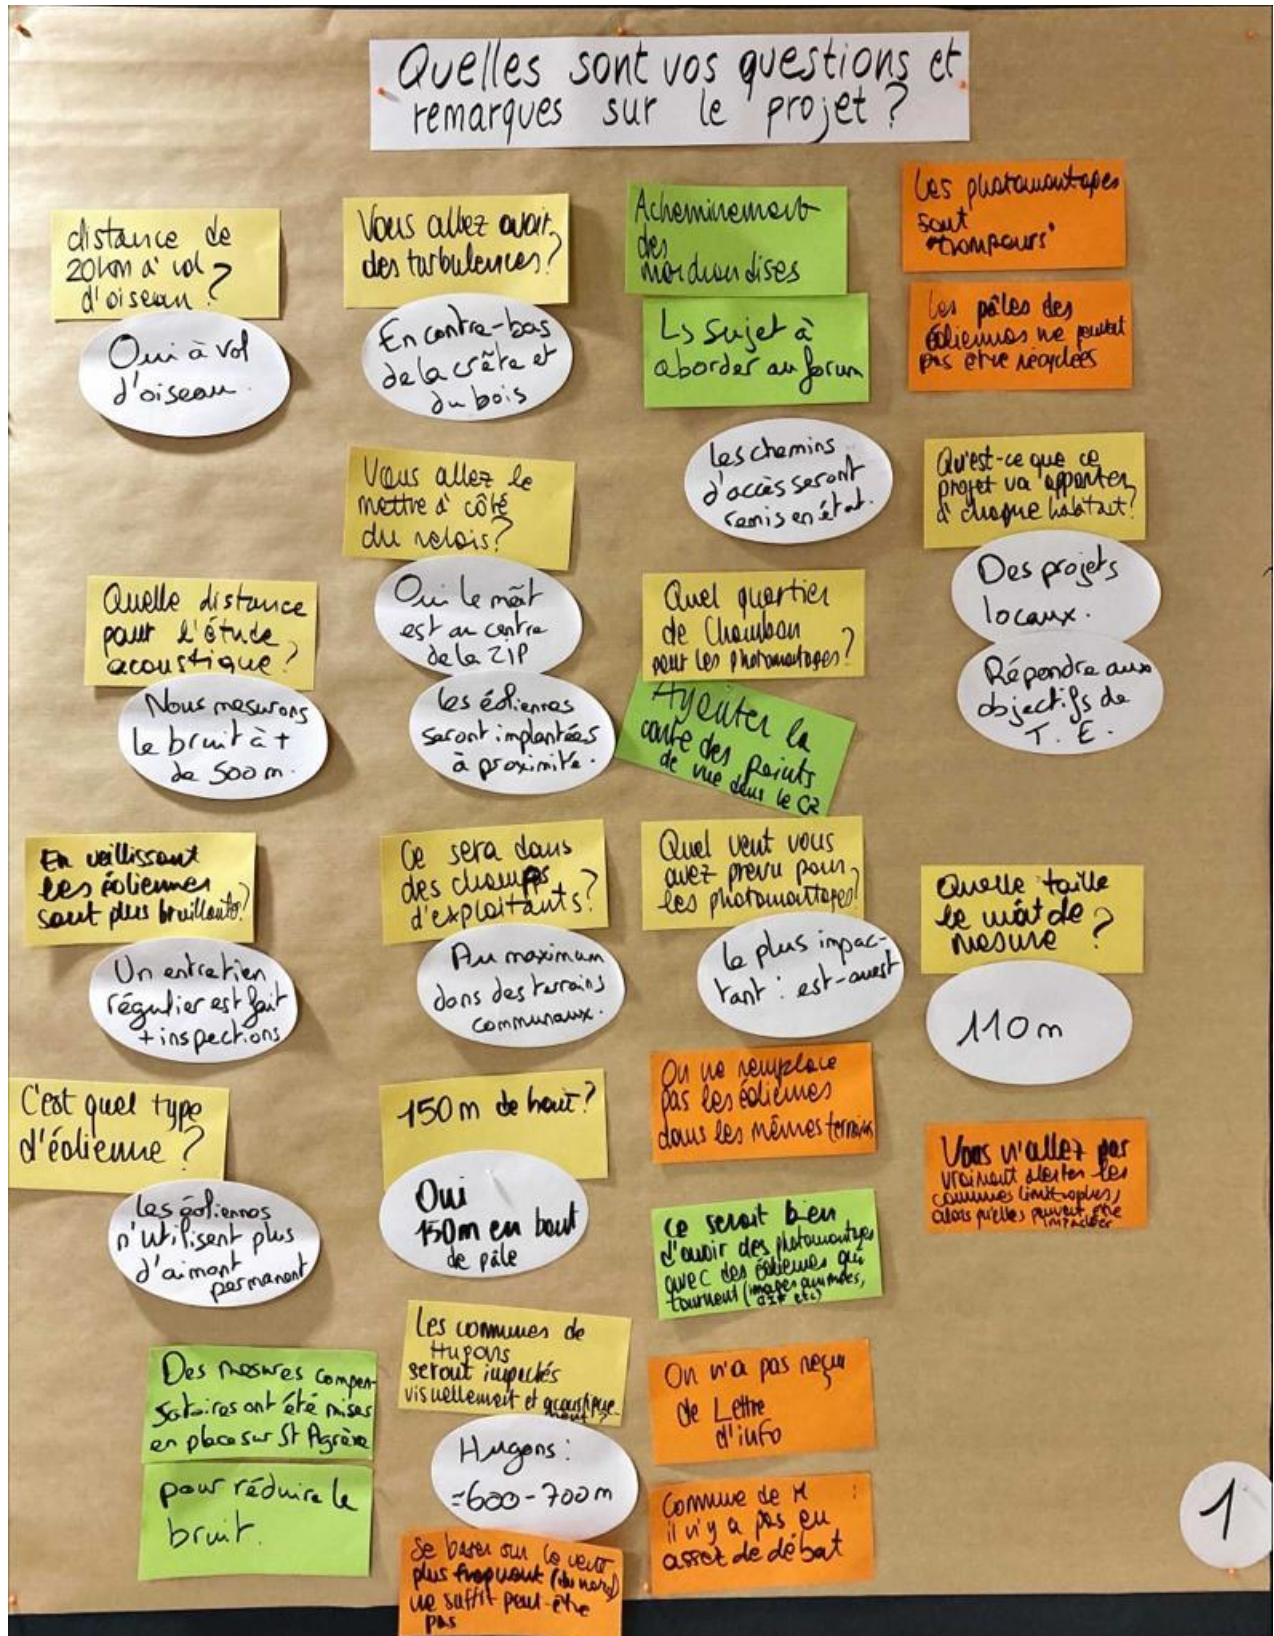 Quelles sont vos questions et
remarques sur le projet ?
distance de
20km à vol
d'oiseau ?
Oui à vol
d'oiseau.
Quelle distance
pour l'étude
acoustique ?
Nous mesurons
le bruit à +
de 500 m.
En vieillissant
les éoliennes
sont plus bruillantes ?
Un entretien
régulier est fait
+ inspections
C'est quel type
d'éolienne ?
Les éoliennes
n'utilisent plus
d'aimant
permanent
Des mesures compen-
satoires ont été mises
en place sur St Agrève
pour réduire le
bruit.
Vous allez avoir
des turbulences ?
En contre-bas
de la crête et
du bois
Vous allez le
mettre à côté
du relais ?
Oui le mât
est au centre
de la ZIP
Les éoliennes
seront implantées
à proximité.
Ce sera dans
des champs
d'exploitants ?
Au maximum
dans des terrains
communaux.
150 m de haut ?
Oui
150m en bout
de pâle
Les communes de
Hugons
seront impactés
visuellement et acoustique-
ment ?
Hugons :
≈600-700m
Se baser sur le vent
plus fréquent (du nord)
ne suffit peut-être
pas
Acheminement
des
marchandises
Ls Sujet à
aborder au forum
Les chemins
d'accès seront
remis en état.
Quel quartier
de Chambon
pour les photomontages ?
Ajouter la
carte des points
de vue dans le CR
Quel vent vous
avez prévu pour
les photomontages ?
le plus impac-
tant : est-ouest
On ne remplace
pas les éoliennes
dans les mêmes terrains
Ce serait bien
d'avoir des photomontages
avec des éoliennes qui
tournent (images animées,
GIF etc)
On n'a pas reçu
de Lettre
d'info
Commune de M :
il n'y a pas eu
assez de débat
Les photomontages
sont
"trompeurs"
Les pâles des
éoliennes ne peuvent
pas être recyclées
Qu'est-ce que ce
projet va apporter
à chaque habitant ?
Des projets
locaux.
Répondre aux
objectifs de
T. E.
Quelle taille
le mât de
mesure ?
110 m
Vous n'allez pas
vraiment alerter les
communes limitrophes,
alors qu'elles peuvent être
impactées
1